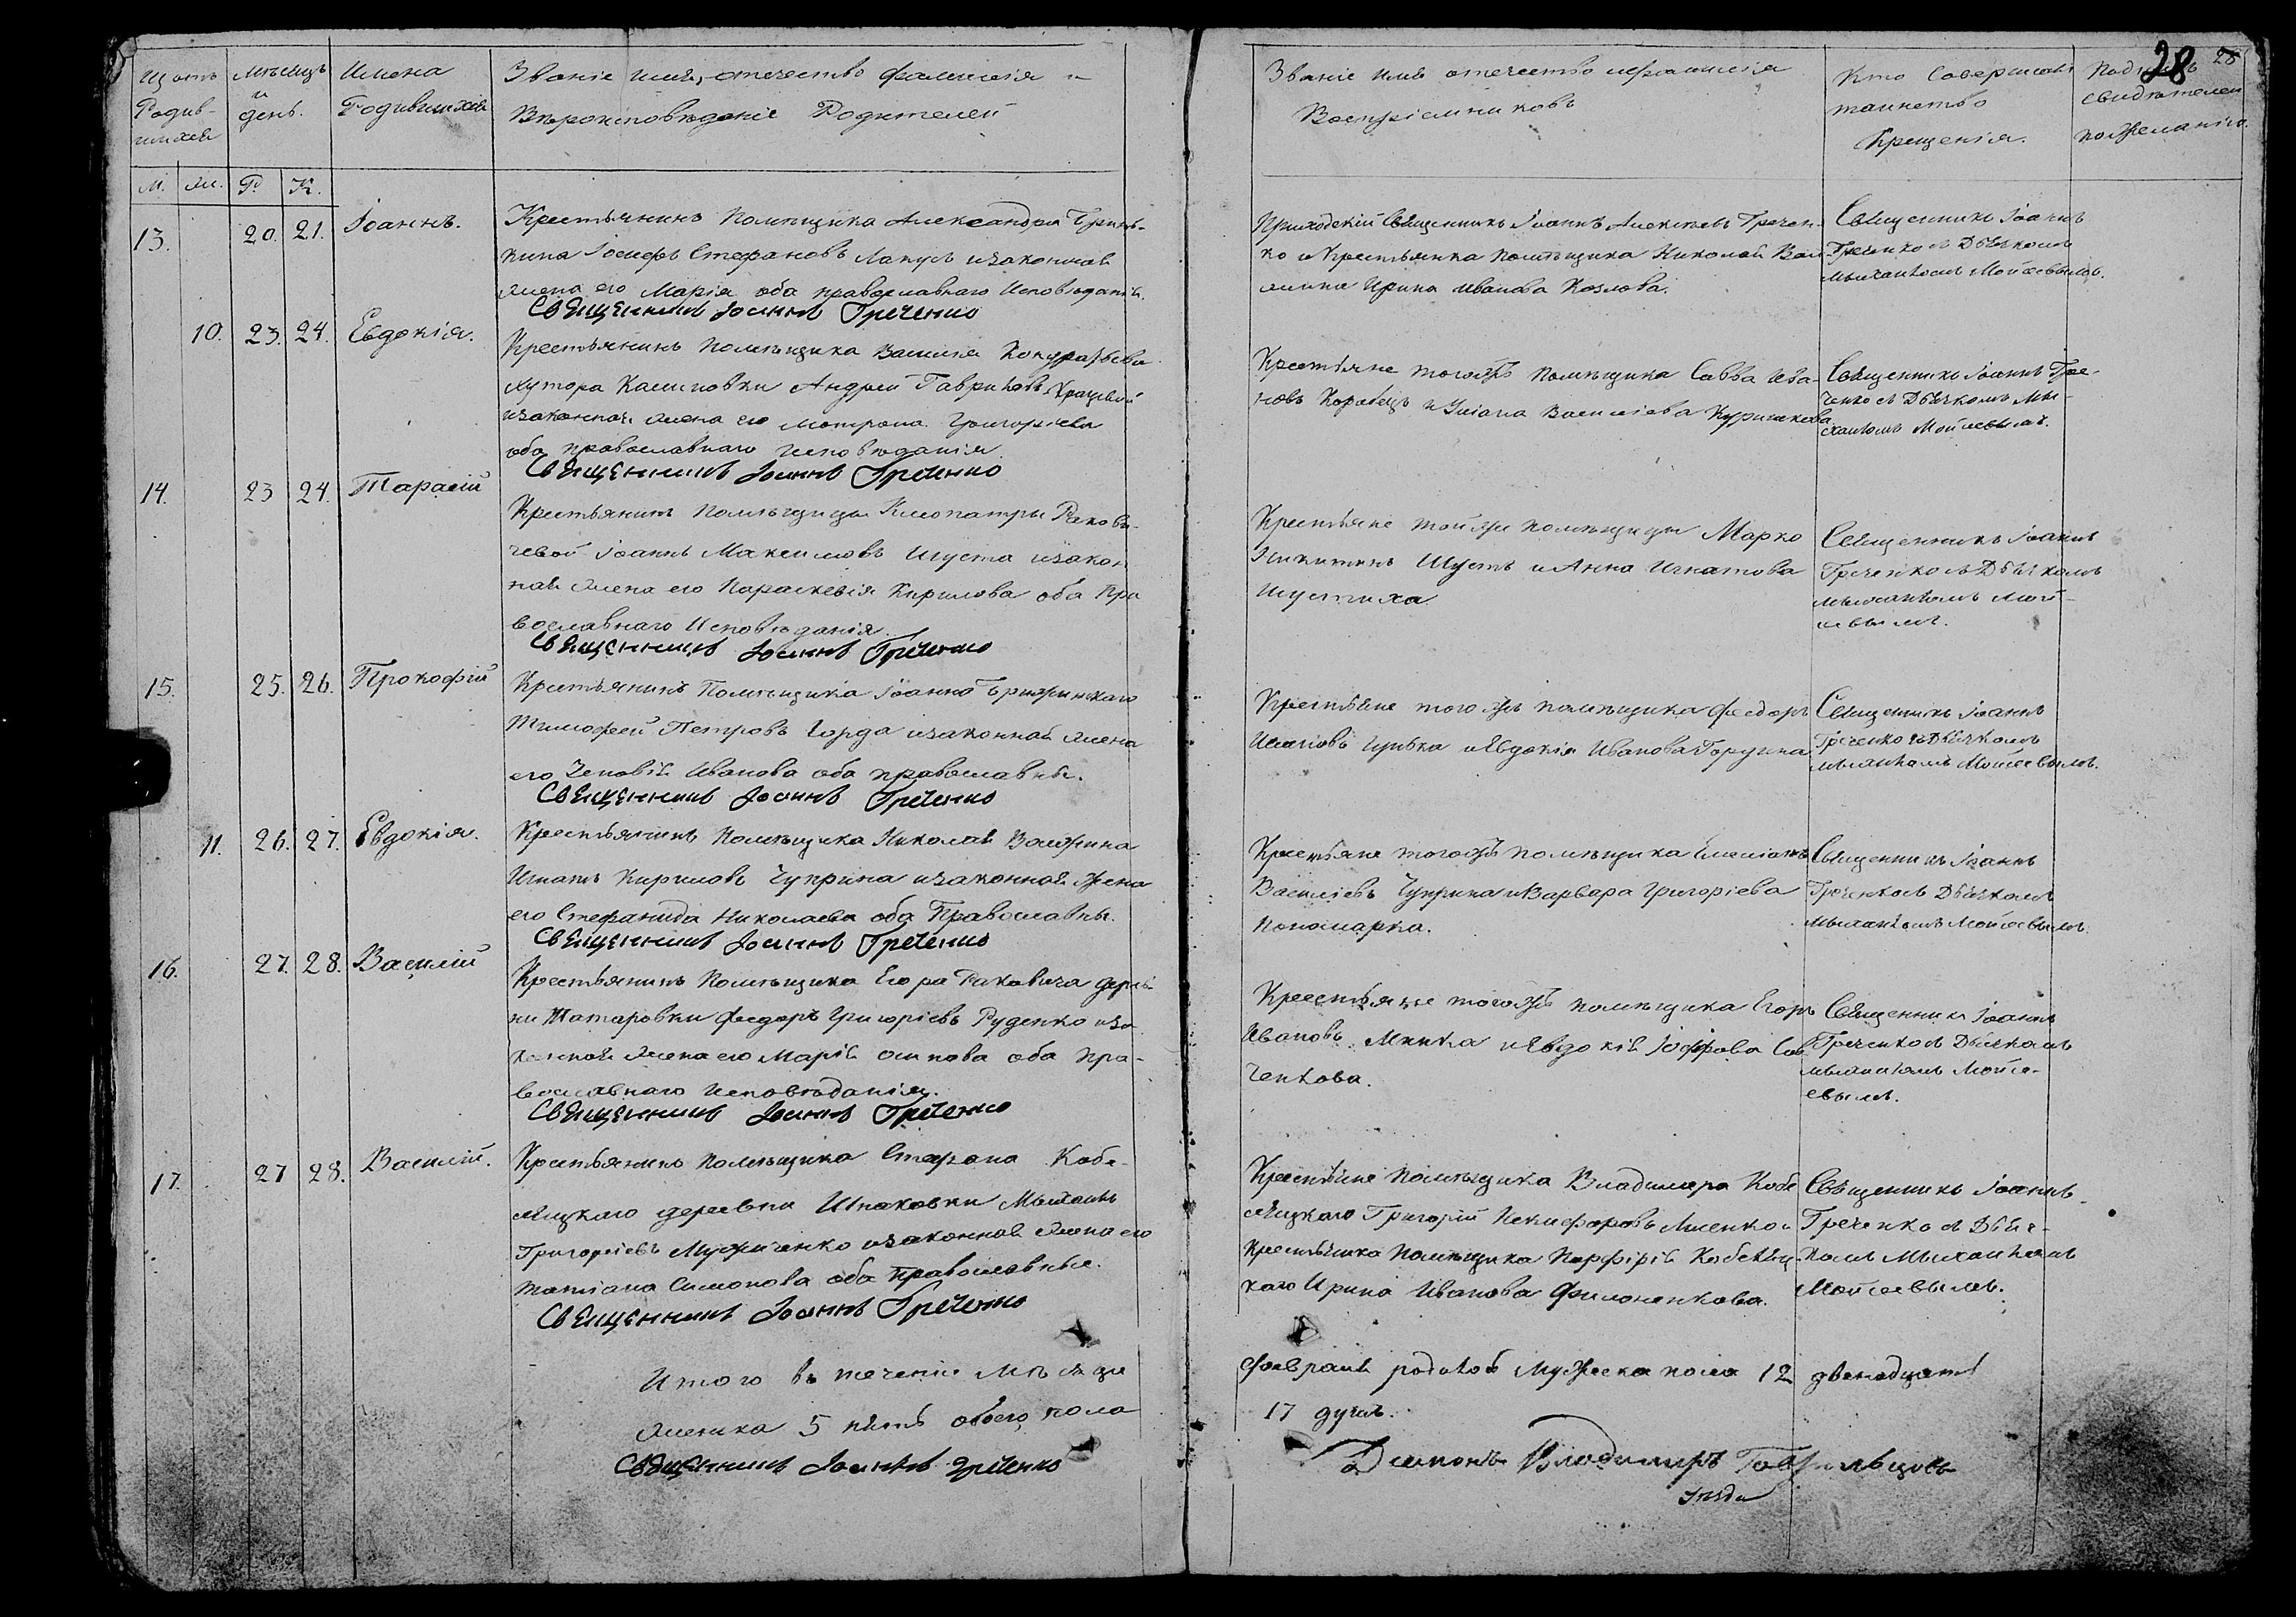 28 28
Щотъ Родив-шихся
Мѣсяцъ и день.
Имена Родившихся
Званіе имя, отечество фамилія и
Вѣроисповѣданіе Родителей
Званіе имя отечество и фамилія
Воспріемниковъ
Кто Совершалъ таинство Крещенія.
свидѣтелей по желанію.
М. Ж. Р. К.
13. 20. 21. Іоаннъ.
Крестьянинъ Помѣщика Александра
Іосифъ Стефановъ изаконная
жена его Марія оба православнаго Исповѣданія.
Священникъ Іоаннъ Греченко
Приходскій Священникъ Іоаннъ Алексѣевъ Гречен-
ко и Крестьянка помѣщика Николая Вол-
жина Ирина Иванова Козлова.
Священникъ Іоаннъ
Греченко съ Дьячкомъ
Михаиломъ Мойсевымъ.
10. 23. 24. Евдокія.
Крестьянинъ Помѣщика Василія Кондратьева
хутора Андрей Гавриловъ
изаконная жена его Мотрона Григорьева
оба православнаго исповѣданія.
Священникъ Іоаннъ Греченко
Крестьяне тогожъ помѣщика Савва Ива-
новъ и Уліана Василіева
Священникъ Іоаннъ Гре-
ченко съ Дьячкомъ Ми-
хаиломъ Мойсевымъ.
14. 23 24. Тарасій
Крестьянинъ Помѣщицы КлеопатрыРакови-
чевой Іоаннъ Максимовъ Шуста изакон
ная жена его Параскевія Кирилова оба Пра
вославнаго Исповѣданія.
Священникъ Іоаннъ Греченко
Крестьяне тойже помѣщицы Марко
Никитинъ Шустъ и Анна Игнатова
Шустиха
Священникъ Іоаннъ
Греченко съ Дьячкомъ
Михаиломъ Мой-
севымъ.
15. 25. 26. Прокофій
Крестьянинъ Помѣщика Іоанна
Тимофей Петровъ изаконная жена
его Зеновія Иванова оба православны.
Священникъ Іоаннъ Греченко
Крестьяне тогожъ помѣщика Федоръ
и Евдокія Иванова
Священникъ Іоаннъ
Греченко съ Дьячкомъ
Михаиломъ Мойсевымъ.
11. 26. 27. Евдокія.
Крестьянинъ Помѣщика Николая Волжина
Игнатъ Кириловъ Чуприна изаконная жена
его Стефанида Николаева оба Православны.
Священникъ Іоаннъ Греченко
Крестьяне тогожъ помѣщика Емеліанъ
Василіевъ Чуприна и Варвара Григоріева
Пономарка.
Священникъ Іоаннъ
Греченко съ Дьячкомъ
Михаиломъ Мойсевымъ.
16. 27. 28. Василій
Крестьянинъ Помѣщика Егора Раковича дерев-
ни Татаровки Федоръ Григоріевъ Руденко иза
конная жена его Марія Осипова оба пра-
вославнаго исповѣданія.
Священникъ Іоаннъ Греченко
Крестьяне тогожъ помѣщика Егоръ
Ивановъ и Евдокія
Священникъ Іоаннъ
Греченко съ Дьячкомъ
Михаиломъ Мойсе-
евымъ.
17. 27 28. Василій.
Крестьянинъ Помѣщика Стефана Кобе-
ляцкаго деревни Михаилъ
Григоріевъ изаконная жена его
Татіана Симонова оба православные.
Священникъ Іоаннъ Греченко
Крестьяне Помѣщика Владимира Кобе
ляцкаго Григорій Никифоровъ Лисенко и
крестьянка Помѣщика Порфирія Кобеляц-
каго Ирина Иванова Филоненкова.
Священникъ Іоаннъ
Греченко съ Дьяч-
комъ Михаиломъ
Мойсевымъ.
Итого въ теченіи Мѣсяца Февраля родилось Мужеска пола 12 двенадцать
Женска 5 пять обоего пола 17 душъ.
Священникъ Іоаннъ Греченко
Владимиръ